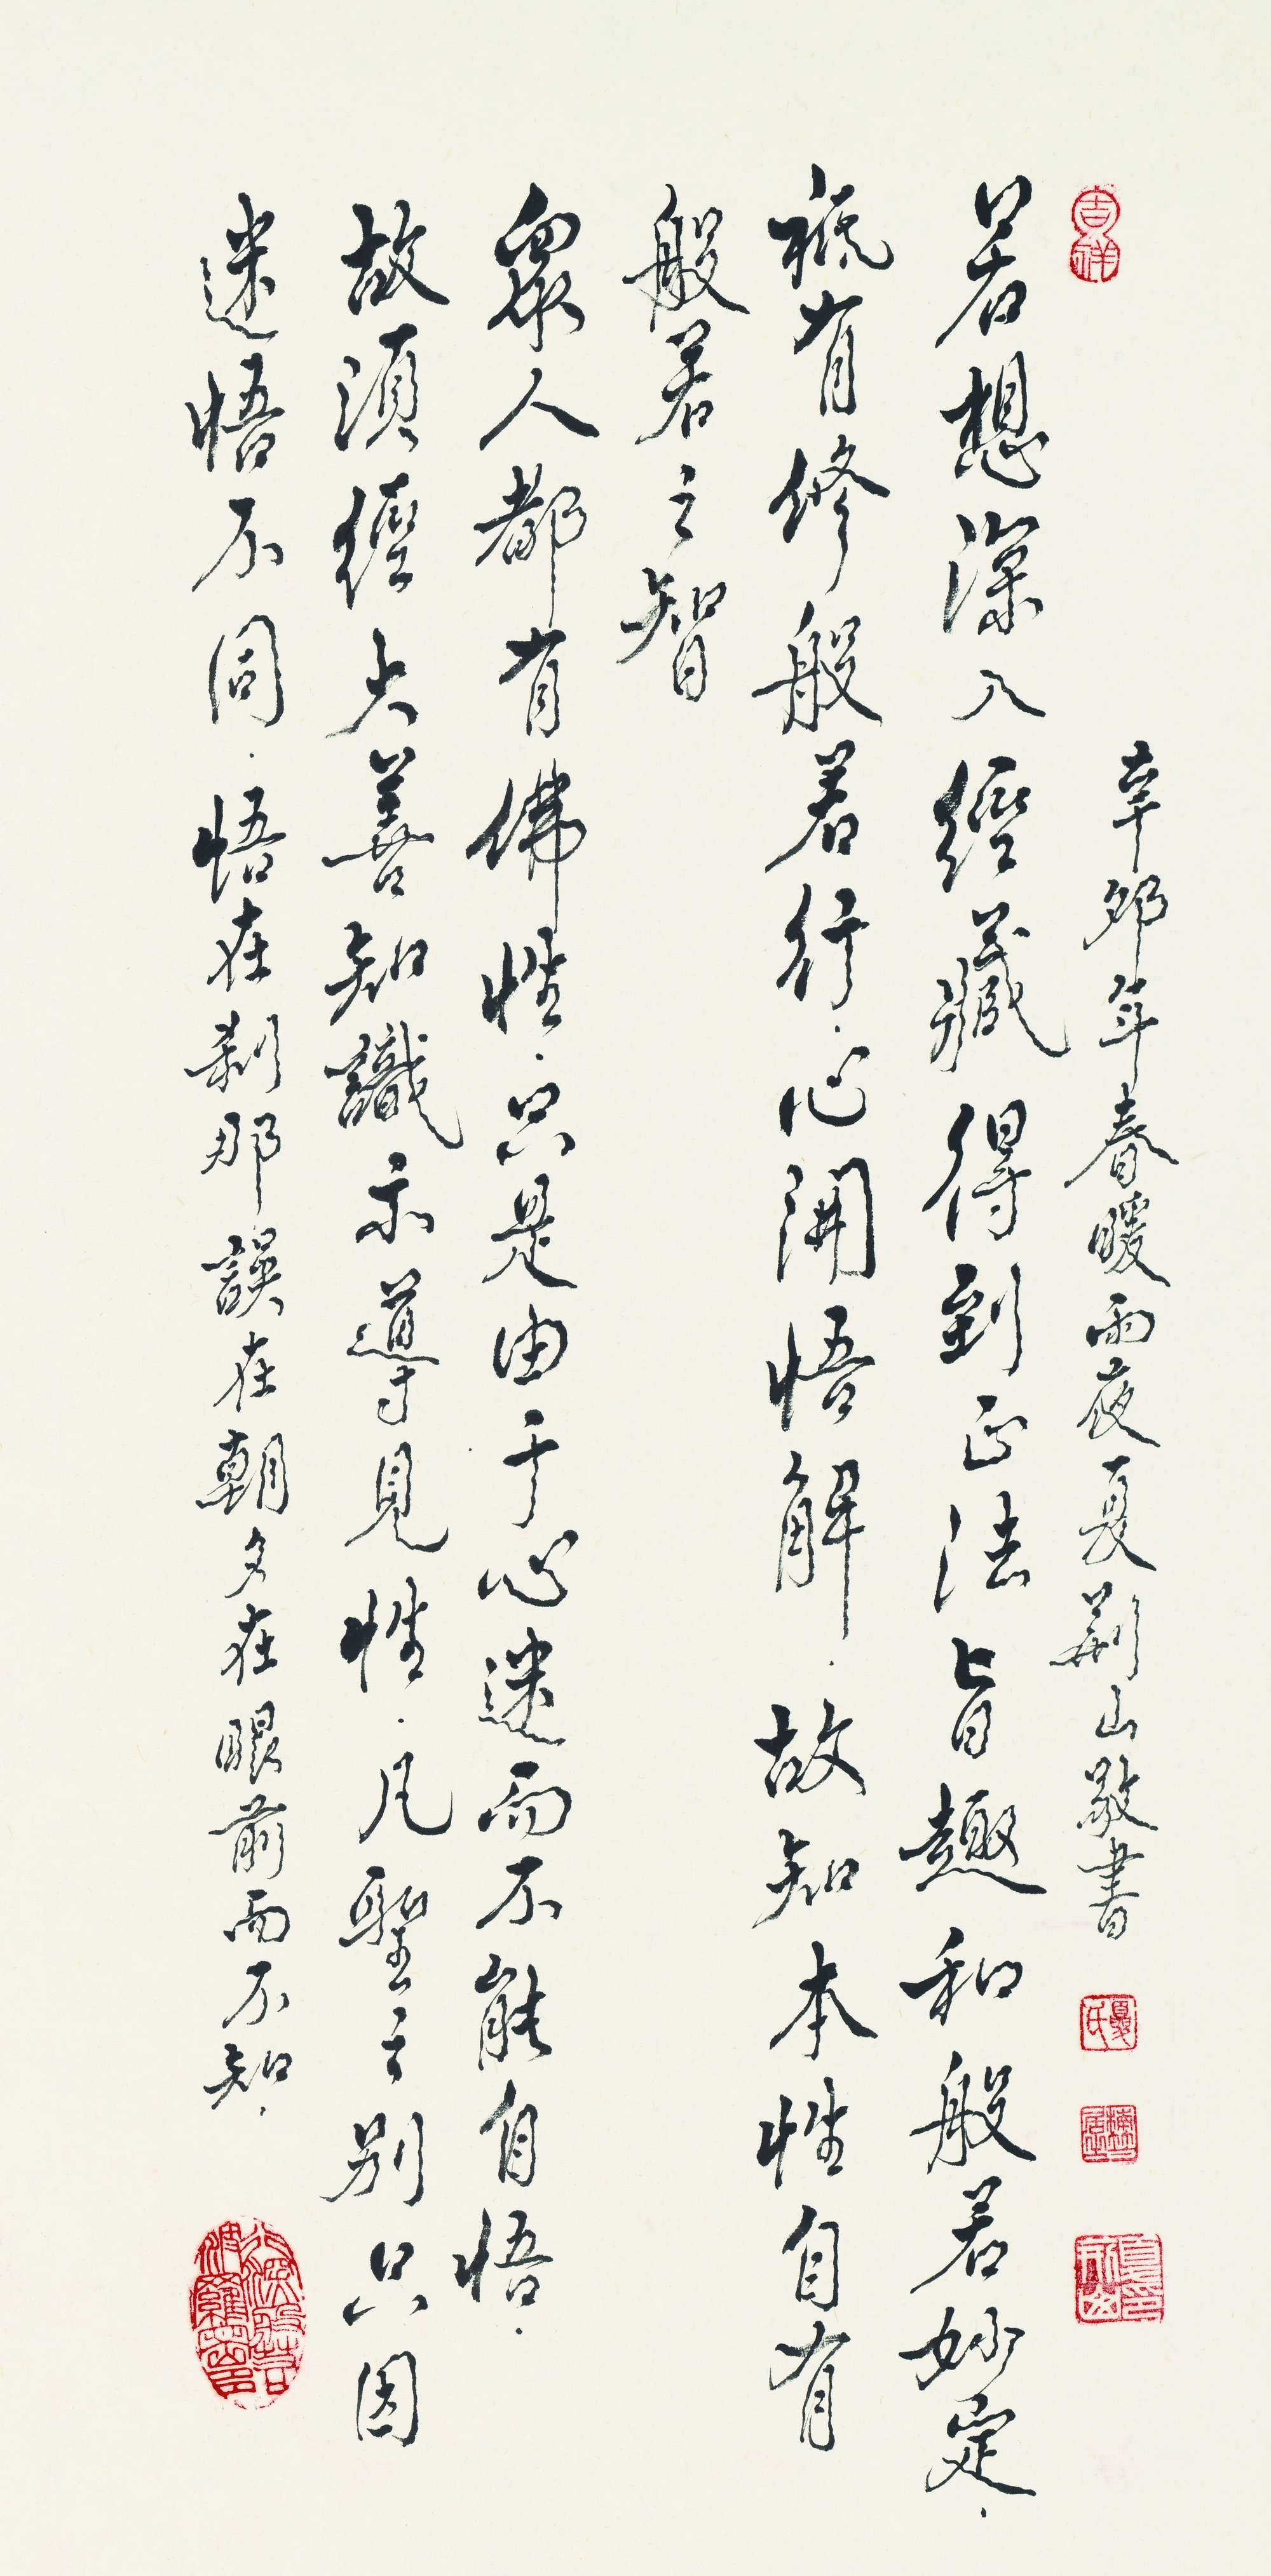 吉祥
辛卯年春暖雨夜夏荆山敬書
夏氏
若想深入經藏得到正法旨趣和般若妙定.
祇有修般若行.心開悟解.故知本性自有
般若之智
眾人都有佛性.只是由于心迷而不能自悟.
故須經大善知識示導見性.凡聖之別只因
迷悟不同.悟在刹那誤在朝夕在眼前而不知.